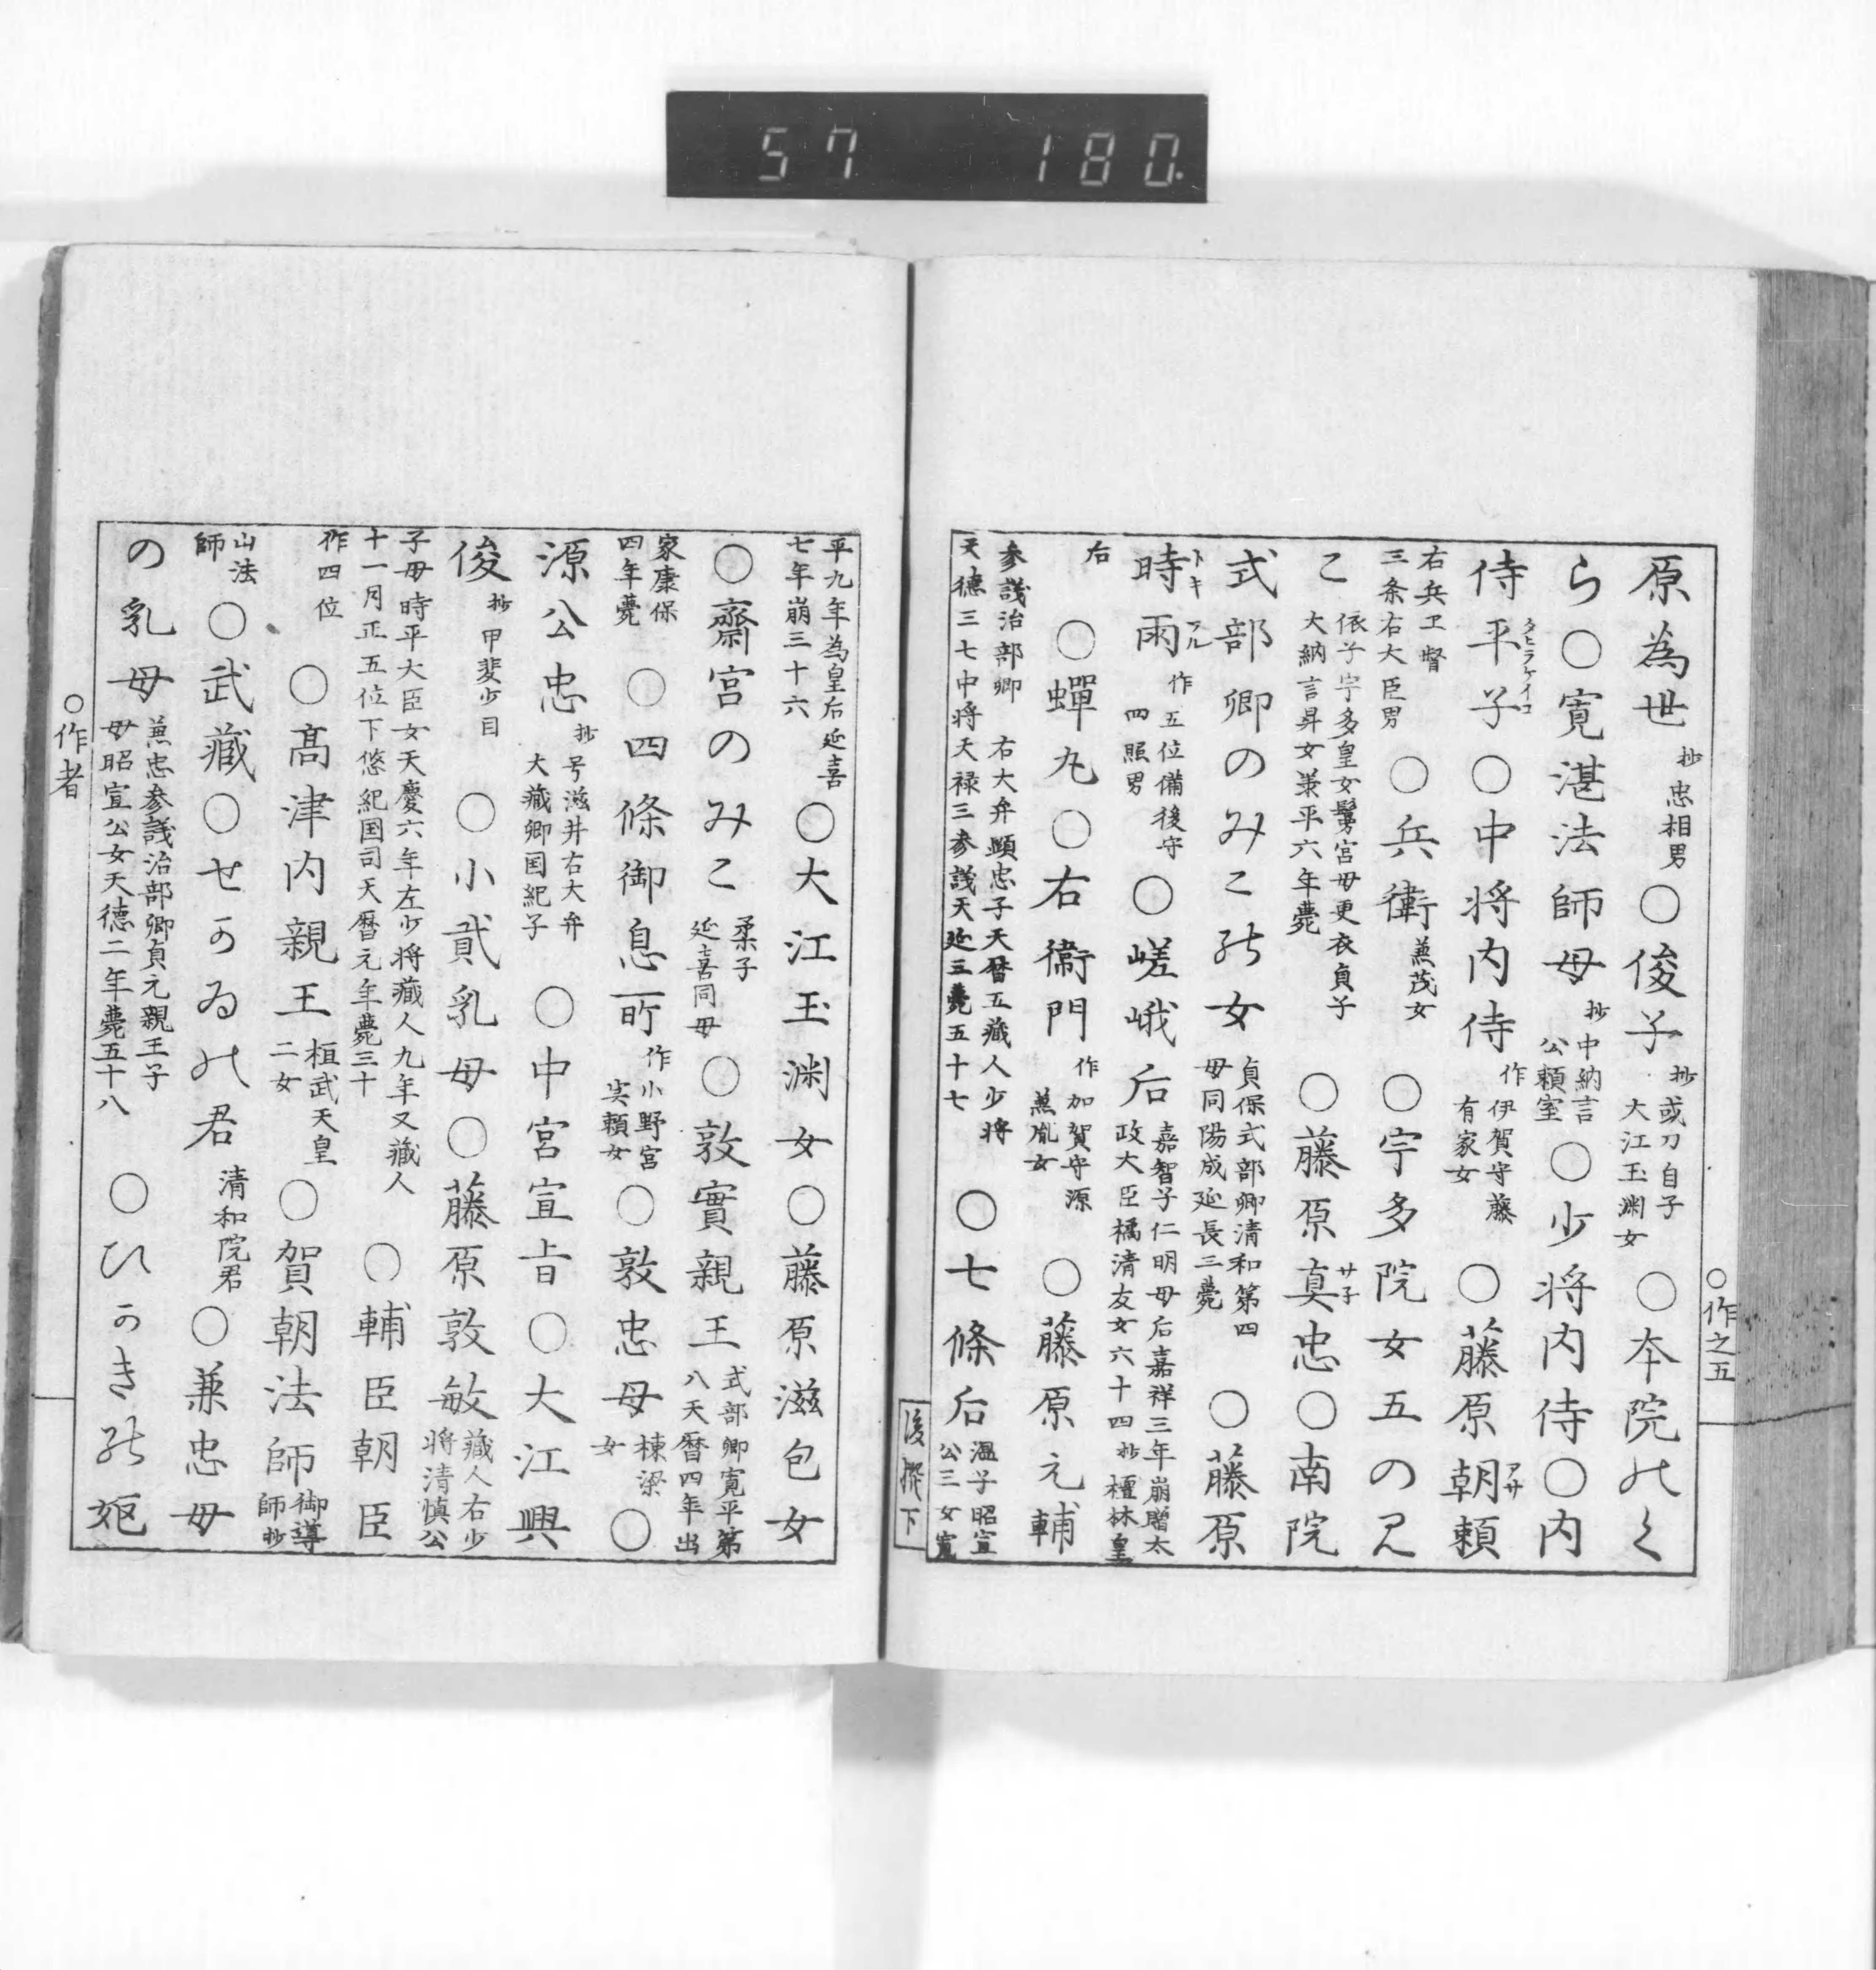 57 180.
○作之五
原為世 抄忠相男 ○俊子 抄或刀自子大江玉渕女 ○本院のく
ら○寛湛法師母 抄中納言公頼室 ○少将内侍○内
侍平子 タヒラケイコ ○中将内侍 作伊賀守藤有家女 ○藤原朝頼 アサ
右兵ヱ督三条右大臣男 ○兵衛 兼茂女 ○宇多院女五のみ
こ 依子宇多皇女鬘宮母更衣貞子大納言昇女業平六年薨 ○藤原真忠 サネ ○南院
式部卿のみこの女 貞保式部卿清和第四母同陽成延長三薨 ○藤原
時雨 トキフル 作五位備後守四照男 ○嵯峨后 嘉智子仁明母后嘉祥三年崩贈太政大臣橘清友女六十四抄檀林皇
后 ○蟬丸○右衛門 作加賀守源兼胤女 ○藤原元輔
参議治部卿 右大弁顕忠子天暦五蔵人少将天徳三七中将天禄三参議天延三薨五十七 ○七條后 温子昭宣公三女寛
後撰下
平九年為皇后延喜七年崩三十六 ○大江玉渕女○藤原滋包女
○齋宮のみこ 柔子延喜同母 ○敦實親王 式部卿寛平第八天暦四年出
家康保四年薨 ○四條御息所 作小野宮実頼女 ○敦忠母 棟梁女 ○
源公忠 抄号滋井右大弁大蔵卿国紀子 ○中宮宣旨○大江興
俊 抄甲斐少目 ○小貳乳母○藤原敦敏 蔵人右少将清慎公
子母時平大臣女天慶六年左少将蔵人九年又蔵人十一月正五位下悠紀国司天暦元年薨三十 ○輔臣朝臣
作四位 ○髙津内親王 桓武天皇二女 ○賀朝法師 御導師抄
山法師 ○武蔵○せかゐの君 清和院君 ○兼忠母
の乳母 兼忠参議治部卿貞元親王子母昭宣公女天徳二年薨五十八 ○ひかきの嫗
○作者